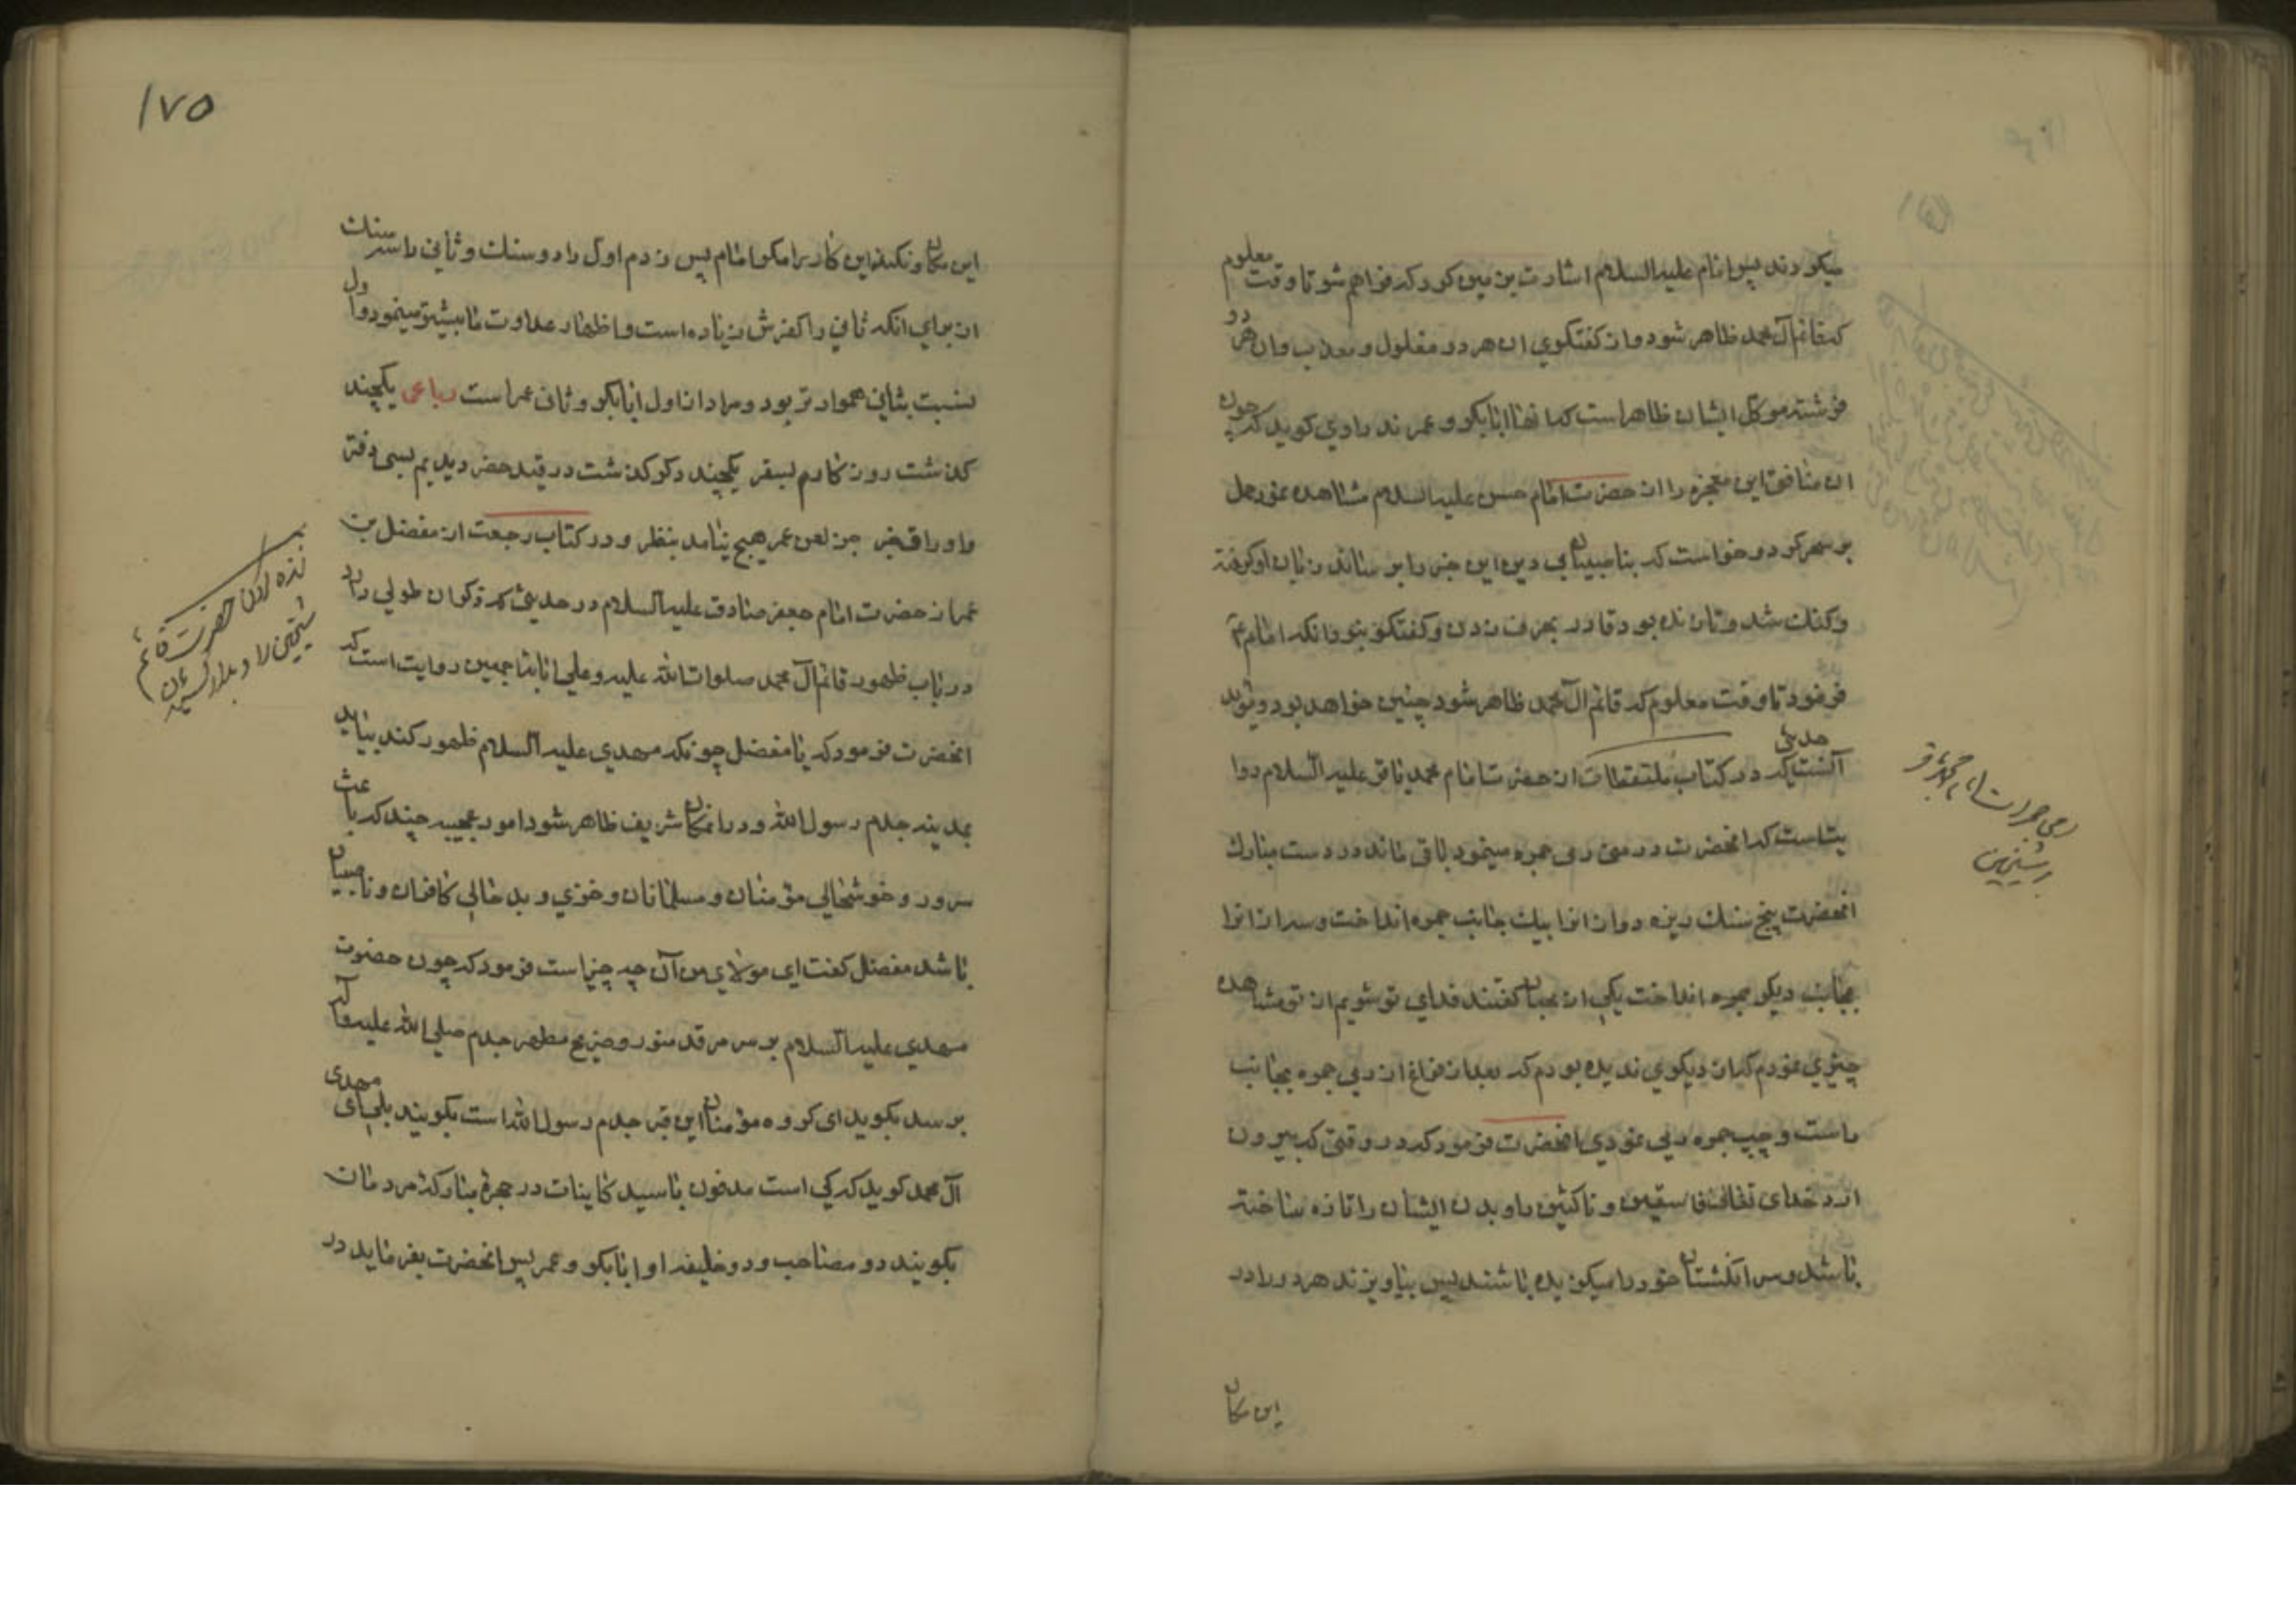 میکردند پس امام علیه السلام اشارت بزمین کرد که فراهم شو تا وقت معلوم
که قائم آل محمد ظاهر شود و از گفتگوی ان هر دو مغلول و معذب وان هر دو
فرشته موکل ایشان ظاهر است که انها ابابکر و عمرند راوی کوید که چون
ان منافق این معجزه را از حضرت امام حسن علیه السلام مشاهده نمود حمل
بر سحر کرد و خواست که بناصبیان بی دین این خبر را برساند زبان او کرفته
و کنک شد و تا زنده بود قادر بحرف زدن و کفتکو نبود انکه امام ع
فرمود تا وقت معلوم که قائم آل محمد ظاهر شود چنین خواهد بود و مؤید
آنست حدیثی که در کتاب ملتقطات از حضرت امام محمد باقر علیه السلام روا
یتاست که انحضرت در منی رمی جمره مینمود باقی مانده در دست مبارک
انحضرت پنج سنک ریزه دو از انرا بیک جانب جمره انداخت و سه از انرا
بجانب دیکر جمره انداخت یکی از محبان کفتند فدای تو شویم از تو مشاهده
چیزی نمودم که از دیکری ندیده بودم که بعد از فراغ از رمی جمره بجانب
راست و چپ جمره رمی نمودی انحضرت فرمود که در وقتی که بیرون
ارد خدای تعالی فاسقین و ناکثین را و بدن ایشان را تازه ساخته
باشد و سر انکشتان خود را میکزیده باشند پس بیاویزند هر دو را در
این مکان
رمی جمرات امام محمد باقر
بر شیخین
۱۷۵
این مکان و نکند این کار را مکر امام پس زدم اول را دو سنک و ثانی را سه سنک
از برای انکه ثانی را کفرش زیاده است و اظهار عداوت ما بیشتر مینمود و اول
بنسبت بثانی هموارتر بود و مراد از اول ابابکر و ثانی عمر است رباعی یکچند
کذشت روزکارم بسفر یکچند دکر کذشت در قید حضر دیدیم بسی دفتر
و اوراق خبر جز لعن عمر هیچ نیامد بنظر و در کتاب رجعت از مفضل بن
عمر از حضرت امام جعفر صادق علیه السلام در حدیثی که ذکر ان طولی دارد
در باب ظهور قائم آل محمد صلوات الله علیه و علی ابائه اجمعین روایت است که
انحضرت فرمود که یا مفضل چونکه مهدی علیه السلام ظهور کند بیاید
بمدینه جدم رسول الله و در انمکان شریف ظاهر شود امور عجیبه چند که باعث
سرور و خوشحالی مؤمنان و مسلمانان و خزی و بد حالی کافران و ناصبیان
باشد مفضل کفت ای مولای من آن چه چیز است فرمود که چون حضرت
مهدی علیه السلام بر سر مرقد منور و ضریح مطهر جدم صلی الله علیه و آله
برسد بکوید ای کروه مؤمنان این قبر جدم رسول الله است بکویند بلی ای مهدی
آل محمد کوید که کی است مدفون با سید کاینات در حجرهٔ مبارکه مردمان
بکویند دو مصاحب و دو خلیفه او ابابکر و عمر پس انحضرت بفرماید در
زنده کردن حضرت قائم
شیخین را و بدار کشیدن